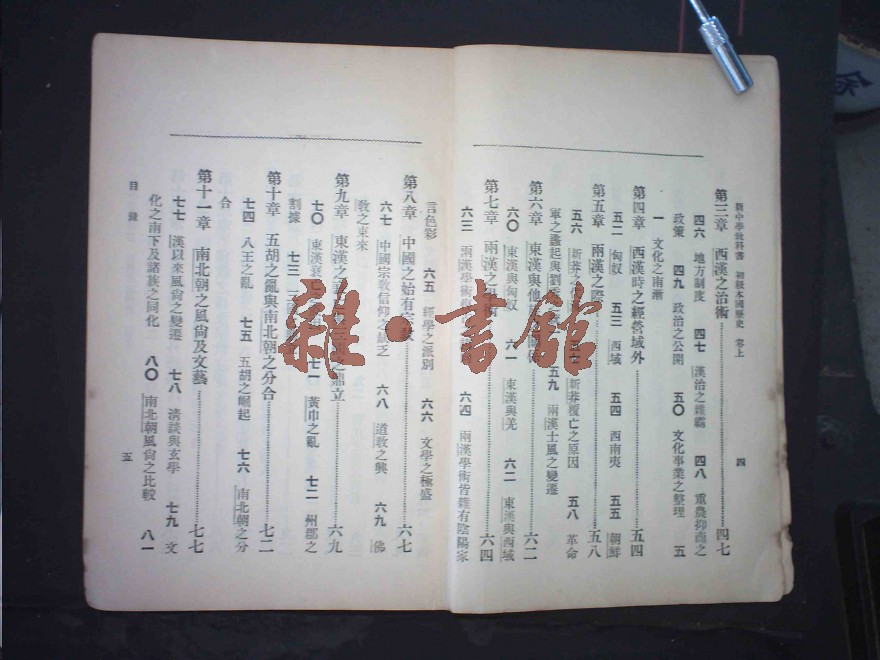 新中學敎科書　初級本國歷史　卷上
四
第三章　西漢之治術……四七
四六　地方制度　四七　漢治之雜霸　四八　重農抑商之
政策　四九　政治之公開　五〇　文化事業之整理　五
一　文化之南漸
第四章　西漢時之經營域外……五四
五二　匈奴　五三　西域　五四　西南夷　五五　朝鮮
第五章　兩漢之際……五八
五六　新莽之　新莽覆亡之原因　五八　革命
軍之蠭起與劉　五九　兩漢士風之變遷
第六章　東漢與他……六二
六〇　東漢與匈奴　六一　東漢與羌　六二　東漢與西域
第七章　兩漢之學術……六四
六三　兩漢學術　六四　兩漢學術皆雜有陰陽家
言色彩　六五　經學之派別　六六　文學之極盛
第八章　中國之始有宗敎……六七
六七　中國宗敎信仰之缺乏　六八　道敎之興　六九　佛
敎之東來
第九章　東漢之　之鼎立……六九
七〇　東漢衰亡　七一　黃巾之亂　七二　州郡之
割據　七三　三
第十章　五胡之亂與南北朝之分合……七二
七四　八王之亂　七五　五胡之崛起　七六　南北朝之分
合
第十一章　南北朝之風尙及文藝……七七
七七　漢以來風尙之變遷　七八　淸談與玄學　七九　文
化之南下及諸族之同化　八〇　南北朝風尙之比較　八一
目　錄
五
雜·書館